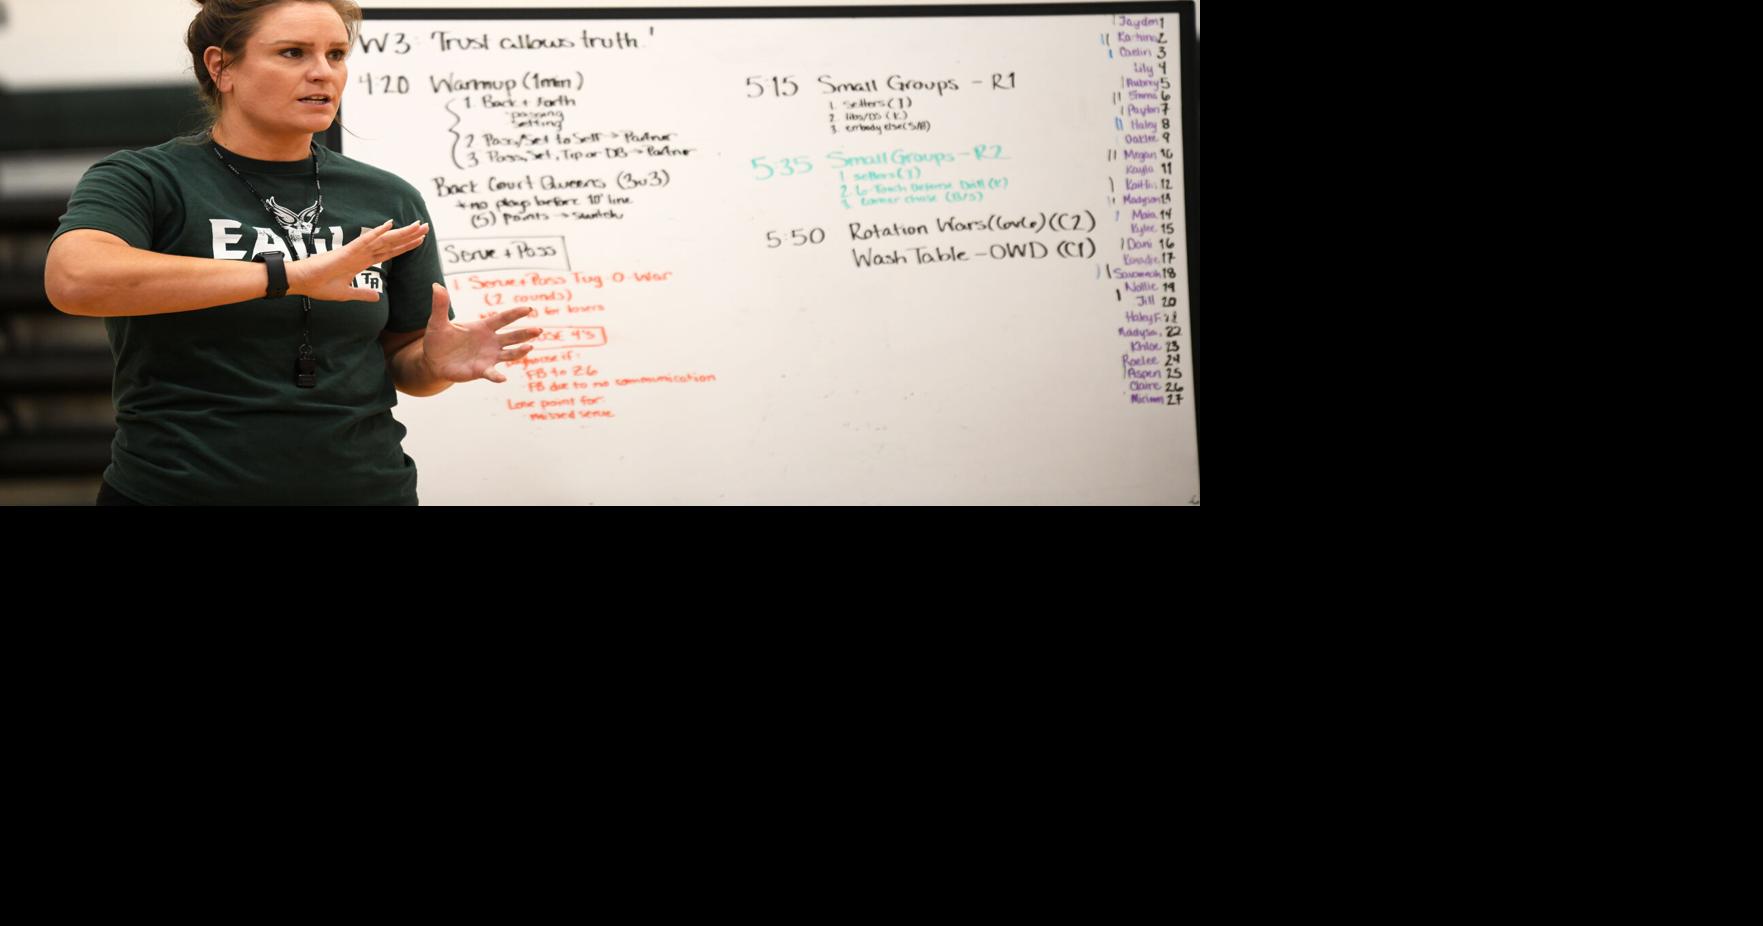 W3: "Trust allows truth."
4:20 Warmup (1min)
1. Back + forth
passing
setting
2 Pass/Set to Self → Partner
3 Pass, Set, Tip or DB → Partner
Back Court Queens (3v3)
no play before 10' line
(5) points → switch
Serve + Pass
1 Serve + Pass Tug-O-War
(2 rounds)
for losers
4's
if:
FB to 26
FB due to no communication
Lose point for:
missed serve
EA
TR
5:15 Small Groups - R1
1. setters (J)
2. libs/DS (K)
3. erbody else (S/B)
5:35 Small Groups - R2
1 setters (J)
2. 6-Touch Defense Drill (K)
3. corner chase (B/S)
5:50 Rotation Wars (6v6) (C2)
Wash Table - OWD (C1)
Jayden 1
Katrina 2
Caelin 3
Lily 4
Aubrey 5
Emma 6
Payton 7
Haley 8
Oaklee 9
Megan 10
Kayla 11
Kaitlin 12
Madyson 13
Maia 14
Kylee 15
Dani 16
17
Savannah 18
Nallie 19
Jill 20
Haley F. 21
Madysn. 22
Khloe 23
Raelee 24
Aspen 25
Claire 26
Miriam 27